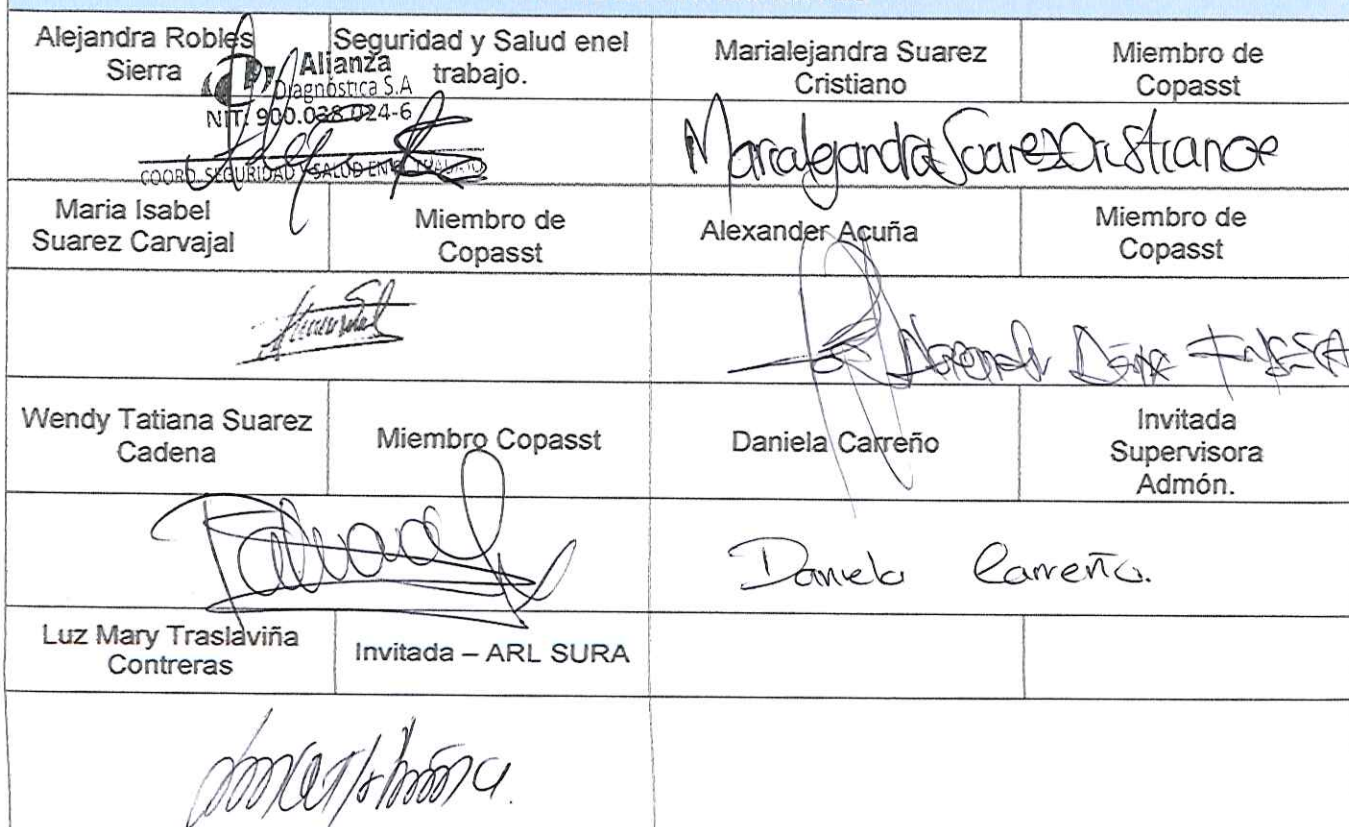 Alejandra Robles
Sierra
Seguridad y Salud enel
trabajo.
Marialejandra Suarez
Cristiano
Miembro de
Copasst
Alianza
Diagnóstica S.A
NIT: 900.038.024-6
COORD. SEGURIDAD Y SALUD EN EL TRABAJO
Marialejandra Suarez Cristiano
Maria Isabel
Suarez Carvajal
Miembro de
Copasst
Alexander Acuña
Miembro de
Copasst
Wendy Tatiana Suarez
Cadena
Miembro Copasst
Daniela Carreño
Invitada
Supervisora
Admón.
Daniela Carreño.
Luz Mary Traslaviña
Contreras
Invitada – ARL SURA